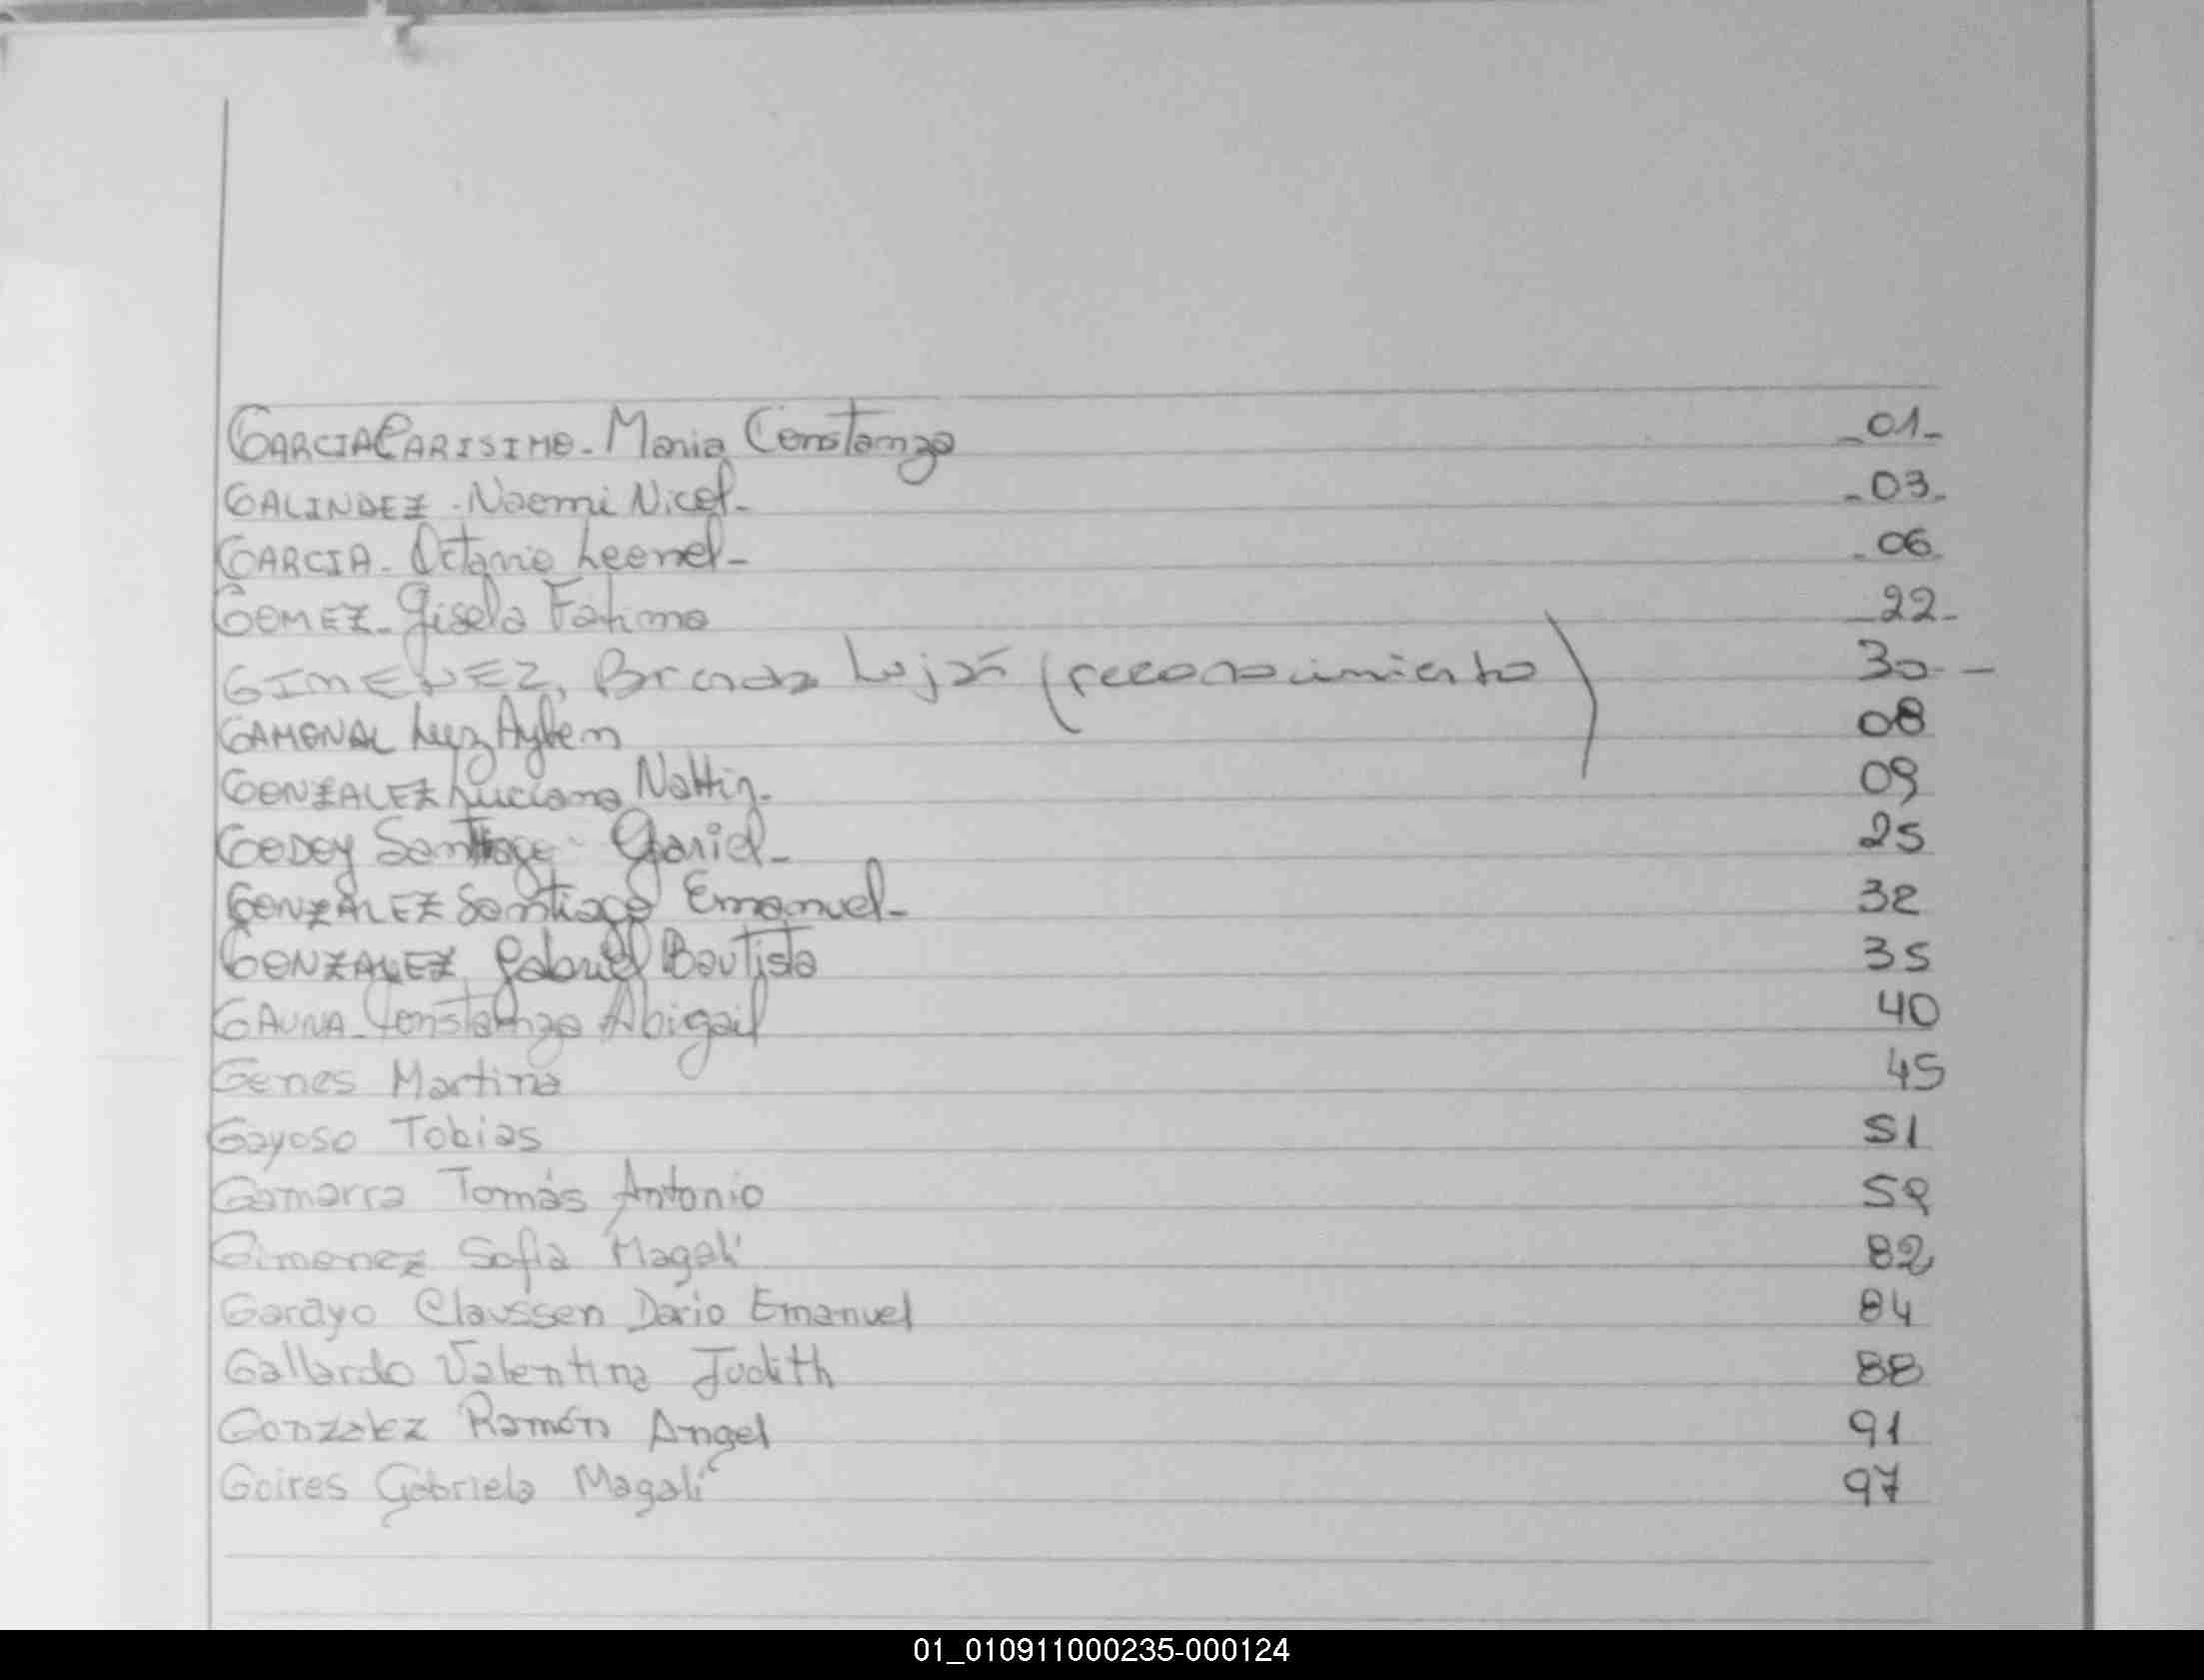 GARCIA CARISIMO - Maria Constanza _01_
GALINDEZ - Naomi Nicol - _03_
GARCIA - Octavio Leonel - _06_
GOMEZ - Gisela Fatima _22_
GIMENEZ, Brenda Luján (reconocimiento) 30 - -
GAMONAL Luz Aylen 08
GONZALEZ Luciana 09
GODOY Santiago 25
GONZALEZ Santiago Emanuel - 32
GONZALEZ Gabriel Bautista 35
GAUNA - Constanza Abigail 40
Genes Martina 45
Gayoso Tobias 51
Gamarra Tomás Antonio 59
Gimenez Sofia Magalí 82
Garayo Claussen Dario Emanuel 84
Gallardo Valentina Judith 88
Gonzalez Ramón Angel 91
Goires Gabriela Magalí 97
01_010911000235-000124